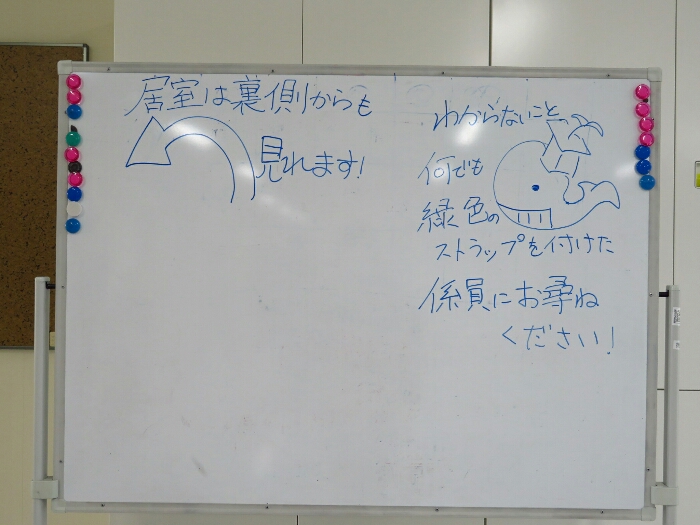 居室は裏側からも
見れます!
わからないこと、
何でも
緑色の
ストラップを付けた
係員にお尋ね
ください!